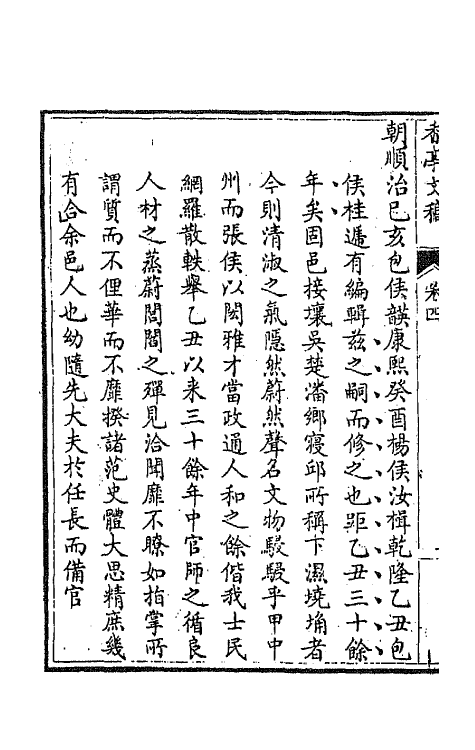 香亭文稿 卷四
朝順治己亥包侯韺康熙癸酉楊侯汝楫乾隆乙丑包
侯桂遞有編輯茲之嗣而修之也距乙丑三十餘
年矣固邑接壤吳楚潘鄉寝邱所稱下濕境埆者
今則清淑之氣隱然蔚然聲名文物駸駸乎甲中
州而張侯以閎雅才當政通人和之餘偕我士民
網羅散軼舉乙丑以来三十餘年中官師之循良
人材之蒸蔚閭閻之殫見洽聞靡不瞭如指掌所
謂質而不俚華而不靡揆諸范史體大思精庶幾
有合余邑人也幼隨先大夫於任長而備官